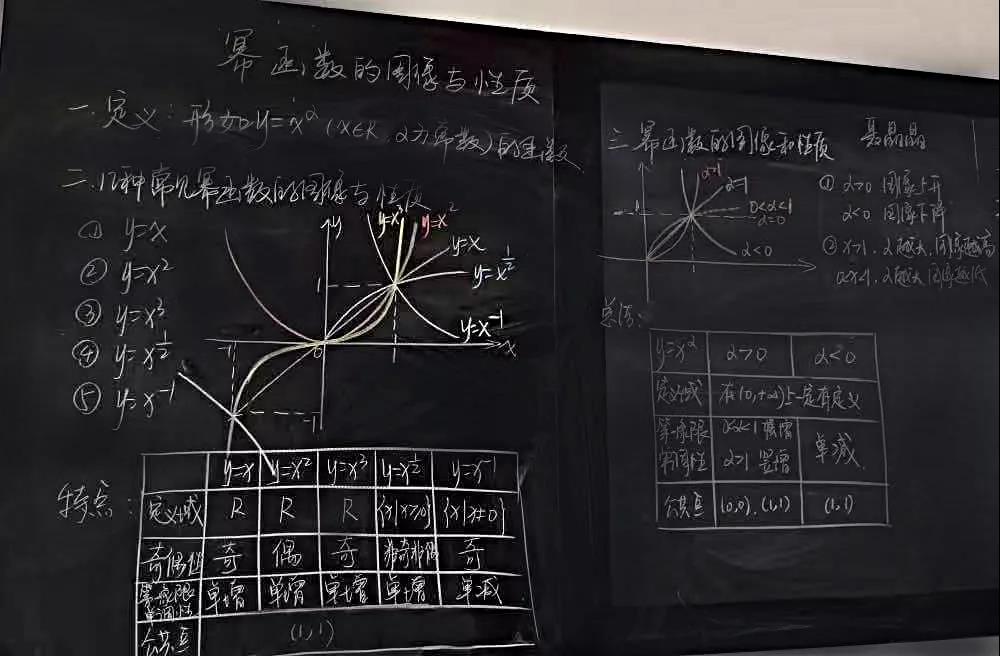 幂函数的图像与性质
一.定义:形如y=x^α(x∈R,α为常数)的函数
二.几种常见幂函数的图像与性质
① y=x
② y=x²
③ y=x³
④ y=x^½
⑤ y=x⁻¹
y
y=x³
y=x²
y=x
y=x^½
y=x⁻¹
x
1
-1
0
-1
特点:
y=x y=x² y=x³ y=x^½ y=x⁻¹
定义域 R R R {x|x≥0} {x|x≠0}
奇偶性 奇 偶 奇 非奇非偶 奇
第一象限单调性 单增 单增 单增 单增 单减
公共点 (1,1)
三.幂函数的图像和性质 聂晶晶
α>1
α=1
0<α<1
α=0
α<0
① α>0 图像上升
α<0 图像下降
② x>1,α越大,图像越高
0<x<1,α越大,图像越低
总结:
y=x^α α>0 α<0
定义域 在(0,+∞)上一定有定义
第一象限 0<α<1 缓增
单调性 α>1 陡增 单减
公共点 (0,0),(1,1) (1,1)